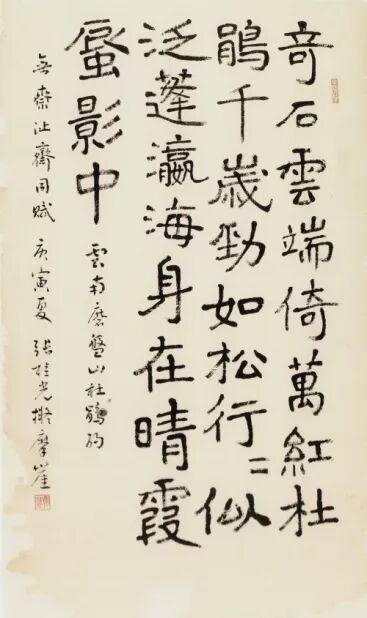 奇石雲端倚萬紅杜
鵑千歲勁如松行〻似
泛蓬瀛海身在晴霞
蜃影中
雲南磨盤山杜鵑約
無齋沚齋同賦 庚寅夏 張桂光擬摩崖